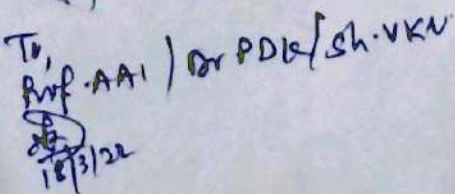 To,
Prof. AAI / Dr PDK / Sh. VKN
18/3/22